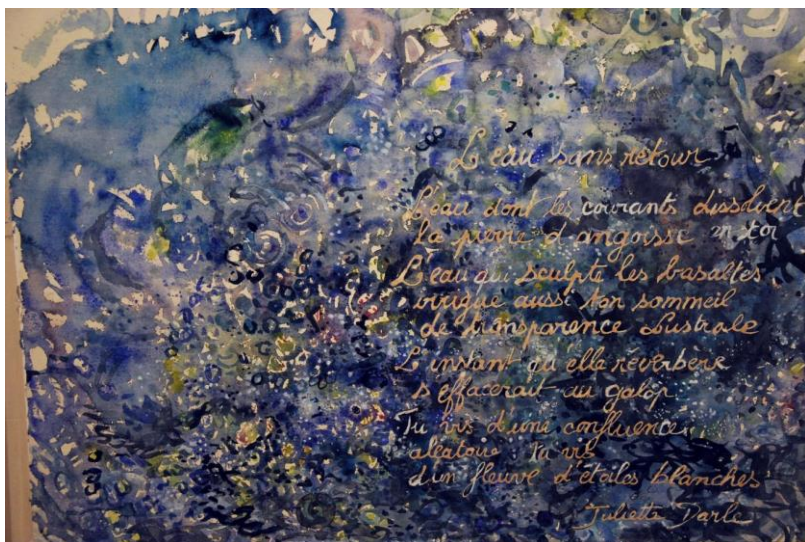 L'eau sans retour
L'eau dont les courants dissolvent
la pierre d'angoisse en toi
L'eau qui sculpte les basaltes
irrigue aussi ton sommeil
de transparence lustrale
L'instant qu'elle réverbère
s'effacerait au galop
Tu vis d'une confluence
aléatoire tu vis
d'un fleuve d'étoiles blanches
Juliette Darle